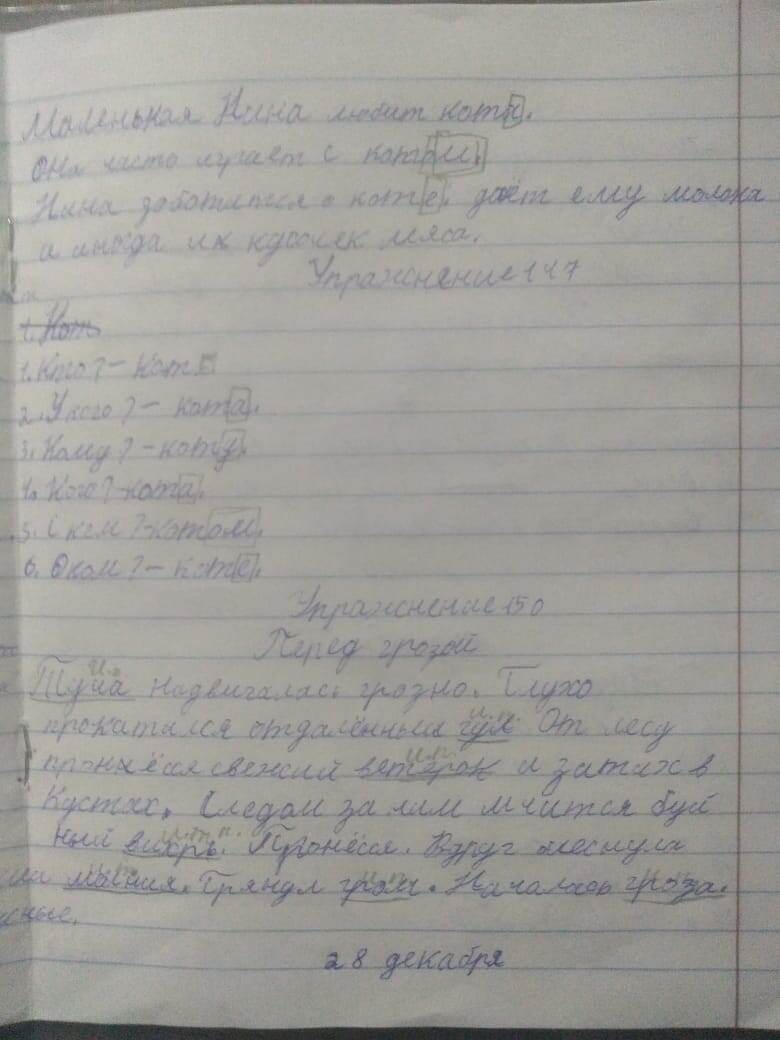 Маленькая Нина любит кота.
Она часто играет с котом.
Нина заботится о коте, даёт ему молока
и иногда их кусочек мяса.
Упражнение 147
1. Кот
1. Кто? – Кот
2. У кого? – кота.
3. Кому? – коту.
4. Кого? – кота.
5. С кем? – котом.
6. О ком? – коте.
Упражнение 150
Перед грозой
И.п.
Туча надвигалась грозно. Глухо
и.п.
прокатился отдалённый гул. От лесу
и.п.
пронёсся свежий ветерок и затих в
кустах. Следом за ним мчится буй
и.п.
ный вихрь. Пронёсся. Вдруг блеснула
и.п. и.п. и.п.
молния. Грянул гром. Началась гроза.
28 декабря